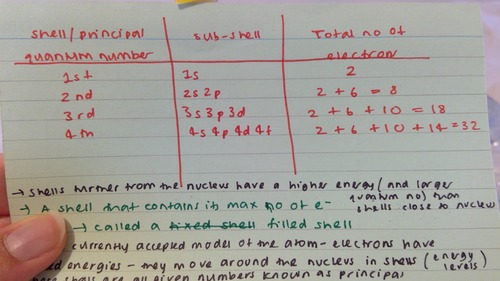 shell/principal quantum number sub-shell Total no of electron
1st 1s 2
2nd 2s 2p 2 + 6 = 8
3rd 3s 3p 3d 2 + 6 + 10 = 18
4th 4s 4p 4d 4f 2 + 6 + 10 + 14 = 32
→ shells further from the nucleus have a higher energy (and larger quantum no) than shells close to nucleus
→ A shell that contains its max no of e-
→ called a fixed shell filled shell
currently accepted model of the atom - electrons have
energies - they move around the nucleus in shells (energy levels)
shells are all given numbers known as principal